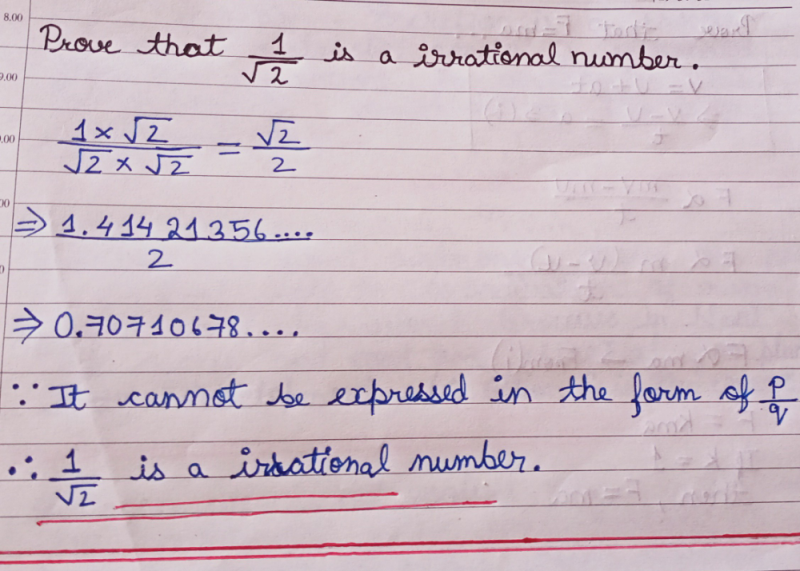 8.00
Prove that 1/√2 is a irrational number.
9.00
1 × √2 / √2 × √2 = √2 / 2
⇒ 1.41421356.... / 2
⇒ 0.70710678....
∵ It cannot be expressed in the form of p/q
∴ 1/√2 is a irrational number.